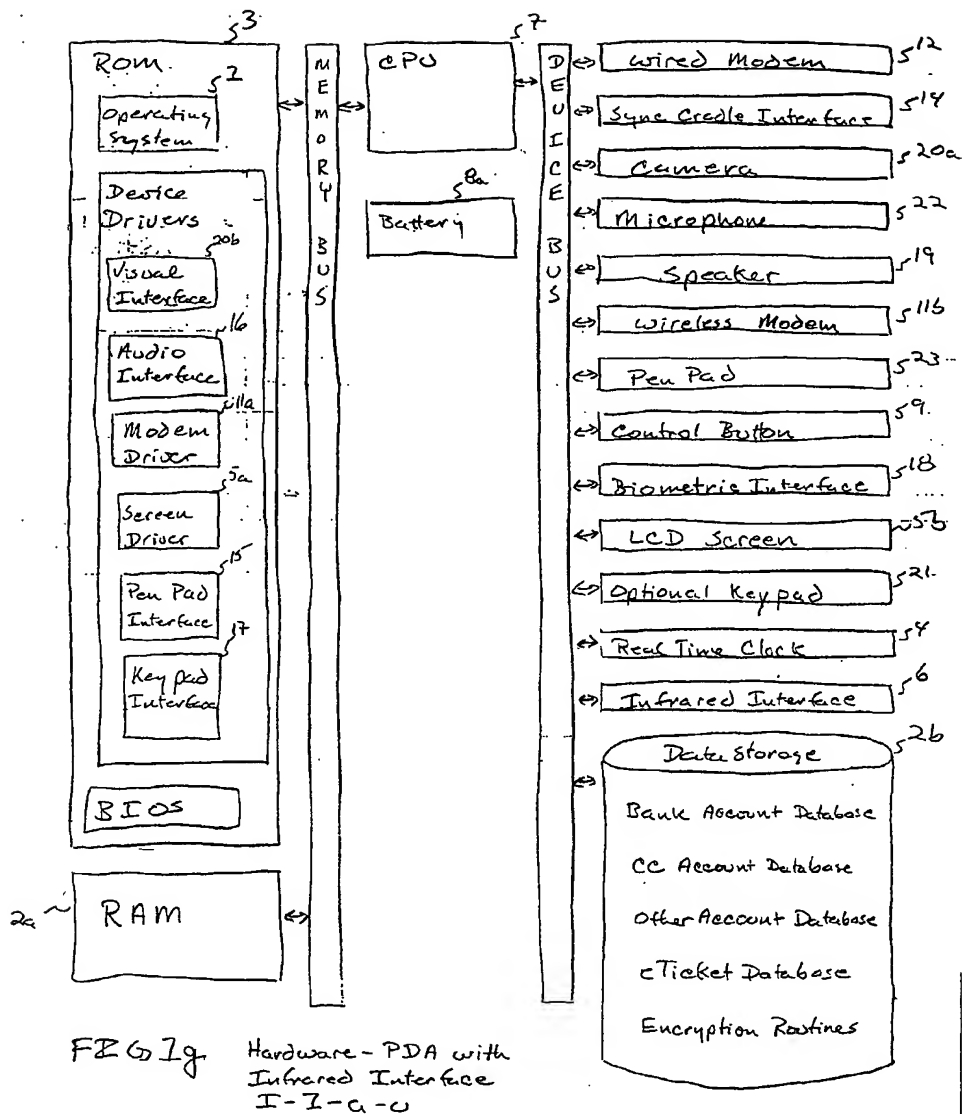 3
ROM
1
Operating
System
Device
Drivers
20b
Visual
Interface
16
Audio
Interface
11a
Modem
Driver
5a
Screen
Driver
15
Pen Pad
Interface
17
Keypad
Interface
BIOS
2a
RAM
MEMORY BUS
7
CPU
8a
Battery
DEVICE BUS
Wired Modem 12
Sync Cradle Interface 14
Camera 20a
Microphone 22
Speaker 19
Wireless Modem 11b
Pen Pad 23
Control Button 9
Biometric Interface 18
LCD Screen 5b
Optional Keypad 21
Real Time Clock 4
Infrared Interface 6
Data Storage 2b
Bank Account Database
CC Account Database
Other Account Database
eTicket Database
Encryption Routines
FIG 1g Hardware - PDA with
Infrared Interface